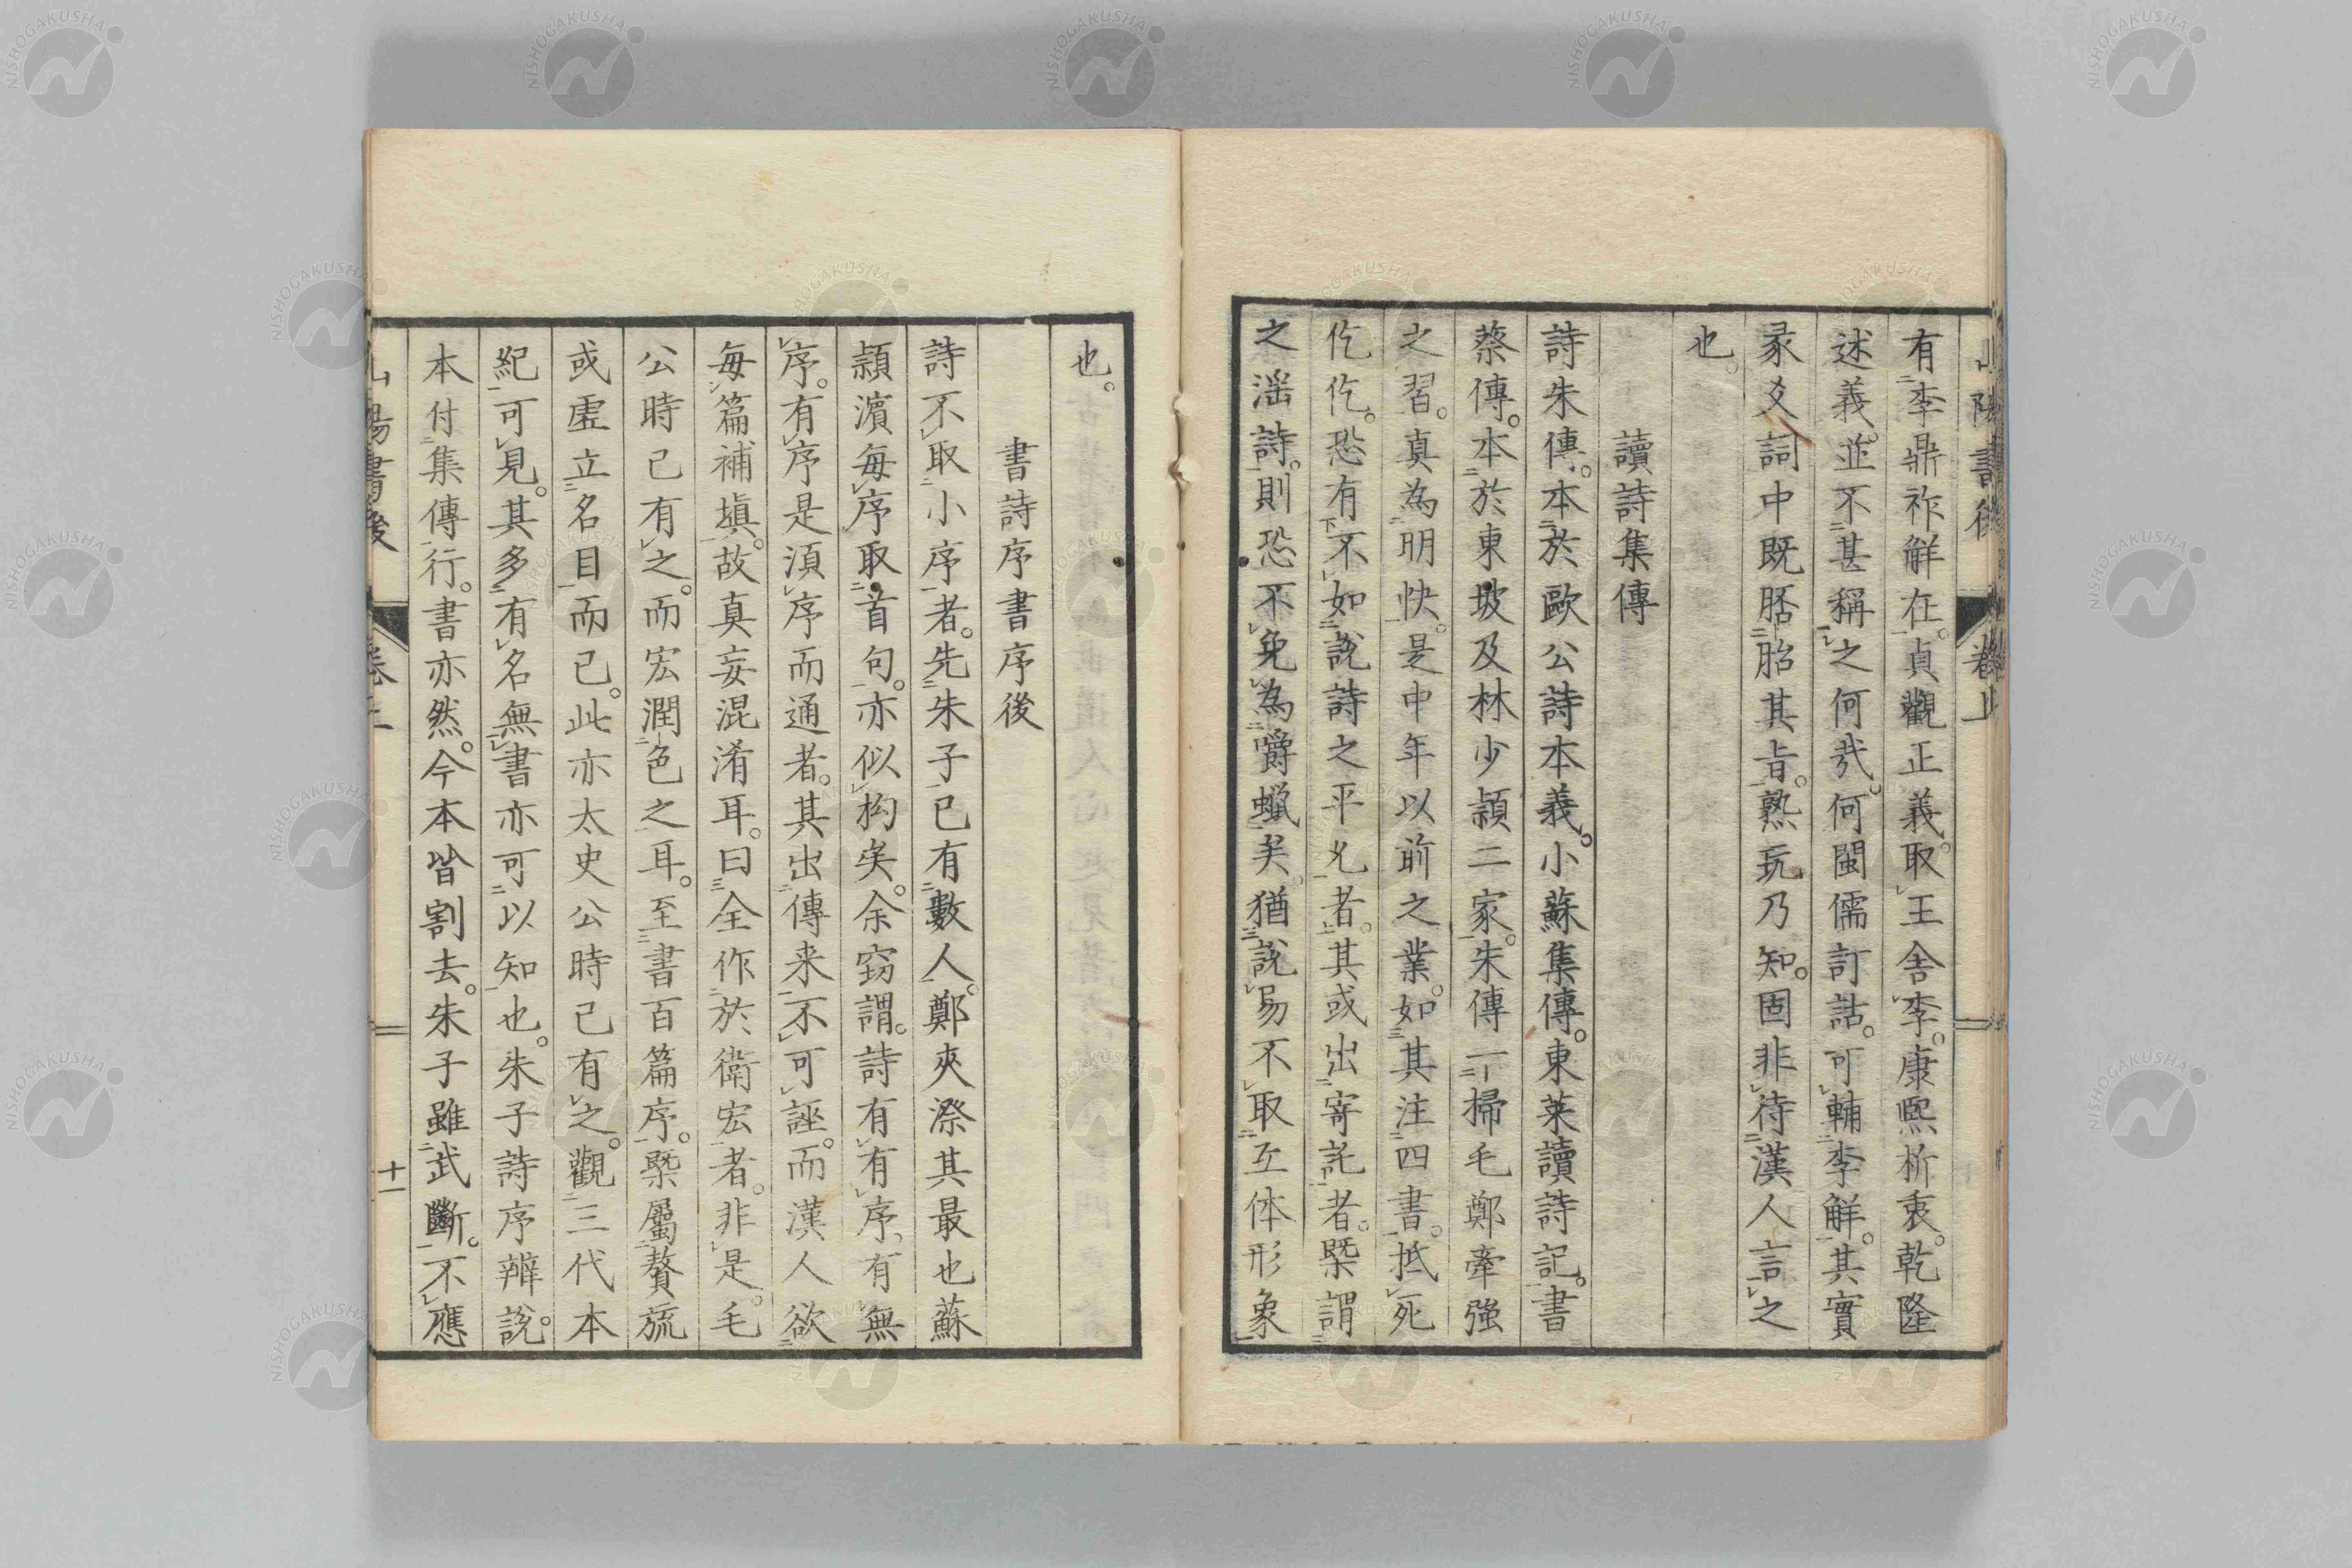 山陽書後 卷上
有李鼎祚解在。貞觀正義。取王舍李。康熙折衷。乾隆
述義。並不甚稱之何㢤。何閩儒訂詁。可輔李解。其實
彖爻詞中既胚胎其旨。熟玩乃知。固非待漢人言之
也。
讀詩集傳
詩朱傳。本於歐公詩本義。小蘇集傳。東萊讀詩記。書
蔡傳。本於東坡及林少頴二家。朱傳一掃毛鄭牽強
之習。真為明快。是中年以前之業。如其注四書。抵死
仡仡。恐有不如說詩之平允者。其或出寄託者。槩謂
之滛詩。則恐不免為嚼蠟矣。猶說易不取互体形象
也。
書詩序書序後
詩不取小序者。先朱子已有數人。鄭夾漈其最也蘇
頴濵每序取首句。亦似拘矣。余窃謂。詩有有序、有無
序。有序是湏序而通者。其出傳来不可誣。而漢人欲
每篇補塡。故真妄混淆耳。曰全作於衛宏者。非是。毛
公時已有之。而宏潤色之耳。至書百篇序。槩屬贅旒
或虛立名目而已。此亦太史公時已有之。觀三代本
紀可見。其多有名無書亦可以知也。朱子詩序辨說。
本付集傳行。書亦然。今本皆割去。朱子雖武斷。不應
山陽書後 卷上 十一
NISHOGAKUSHA